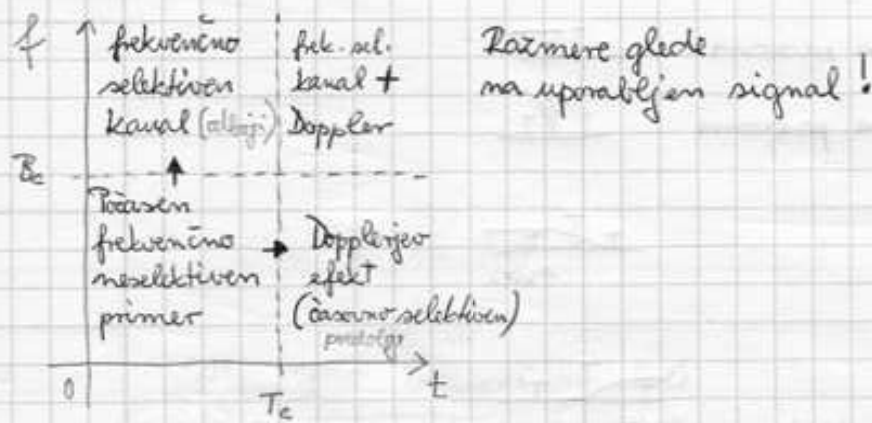 f
frekvenčno
selektiven
kanal
frek. sel.
kanal +
Doppler
Razmere glede
na uporabljen signal!
Bc
Počasen
frekvenčno
neselektiven
primer
Dopplerjev
efekt
(časovno selektiven)
0
Tc
t